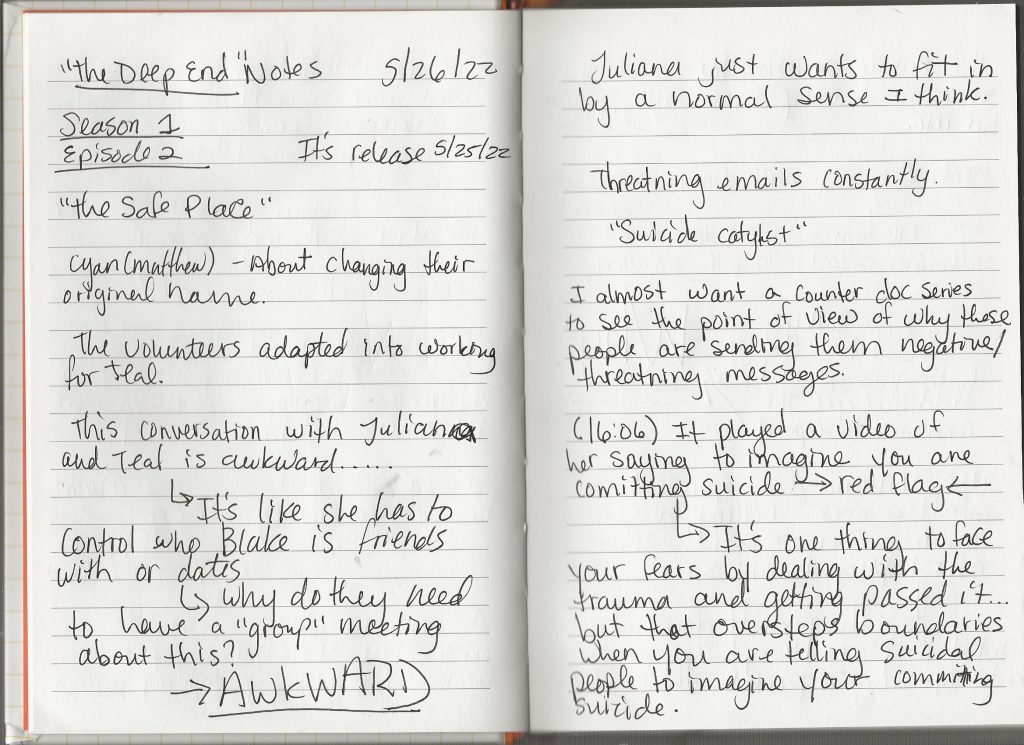 "the Deep End" Notes 5/26/22
Season 1
Episode 2 It's release 5/25/22
"the Safe Place"
Cyan (matthew) - About changing their
original name.
The volunteers adapted into working
for Teal.
This conversation with Juliana
and Teal is awkward......
↳ It's like she has to
control who Blake is friends
with or dates
↳ why do they need
to have a "group" meeting
about this?
→ AWKWARD
Juliana just wants to fit in
by a normal sense I think.
Threatning emails constantly.
"Suicide catylst"
I almost want a counter doc series
to see the point of view of why those
people are sending them negative/
threatning messages.
(16:06) It played a video of
her saying to imagine you are
comitting suicide → red flag ←
↳ It's one thing to face
your fears by dealing with the
trauma and getting passed it...
but that oversteps boundaries
when you are telling suicidal
people to imagine your commiting
suicide.